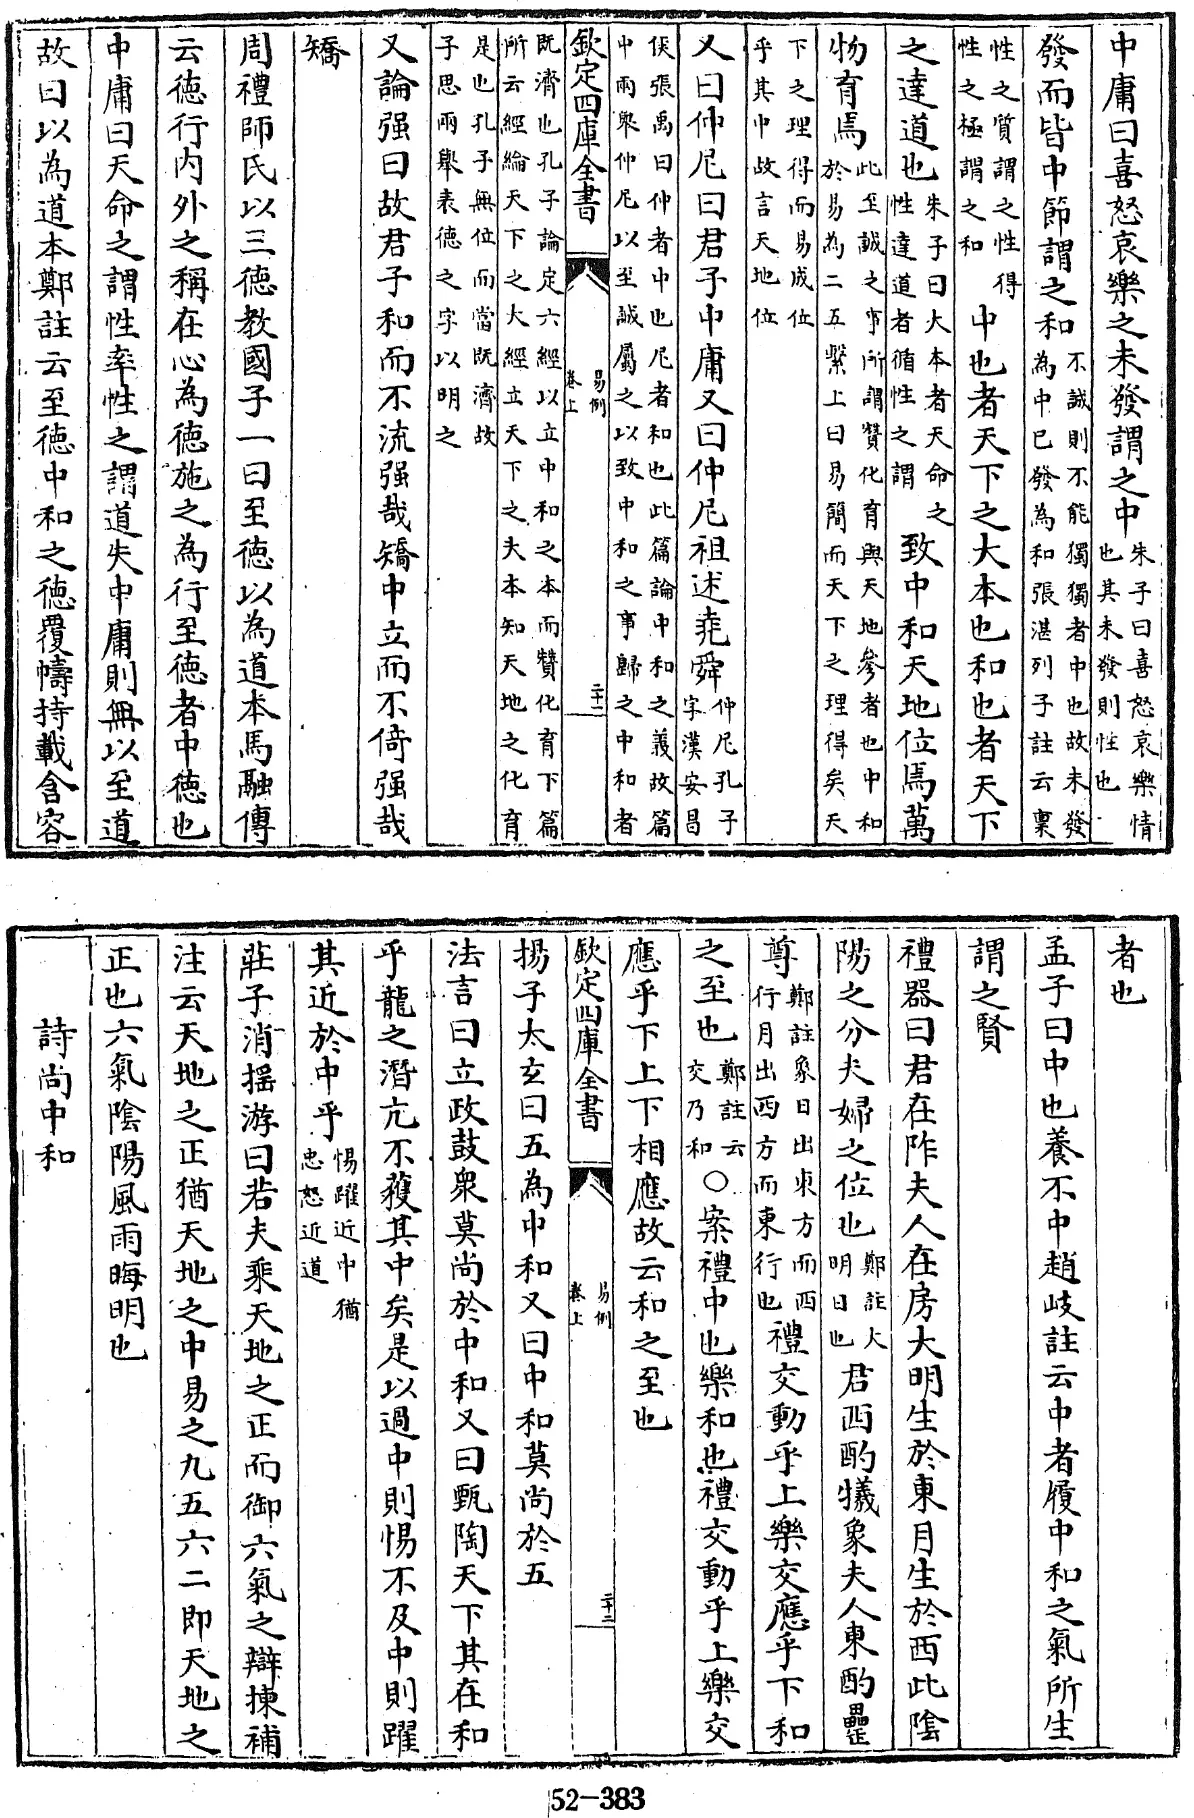 中庸曰喜怒哀樂之未發謂之中朱子曰喜怒哀樂情也其未發則性也
發而皆中節謂之和不誠則不能獨獨者中也故未發為中已發為和張湛列子註云稟
性之質謂之性得性之極謂之和中也者天下之大本也和也者天下
之達道也朱子曰大本者天命之性達道者循性之謂致中和天地位焉萬
物育焉此至誠之事所謂贊化育與天地參者也中和於易為二五繫上曰易簡而天下之理得矣天
下之理得而易成位乎其中故言天地位
又曰仲尼曰君子中庸又曰仲尼祖述堯舜仲尼孔子字漢安昌
侯張禹曰仲者中也尼者和也此篇論中和之義故篇中兩舉仲尼以至誠屬之以致中和之事歸之中和者
欽定四庫全書
易例
卷上
二十二
既濟也孔子論定六經以立中和之本而贊化育下篇所云經綸天下之大經立天下之大本知天地之化育
是也孔子無位而當既濟故子思兩舉表德之字以明之
又論强曰故君子和而不流强哉矯中立而不倚强哉
矯
周禮師氏以三徳教國子一曰至徳以為道本馬融傳
云徳行内外之稱在心為徳施之為行至徳者中徳也
中庸曰天命之謂性率性之謂道失中庸則無以至道
故曰以為道本鄭註云至徳中和之徳覆幬持載含容
者也
孟子曰中也養不中趙岐註云中者履中和之氣所生
謂之賢
禮器曰君在阼夫人在房大明生於東月生於西此陰
陽之分夫婦之位也鄭註大明日也君西酌犧象夫人東酌罍
尊鄭註象日出東方而西行月出西方而東行也禮交動乎上樂交應乎下和
之至也鄭註云交乃和○案禮中也樂和也禮交動乎上樂交
應乎下上下相應故云和之至也
欽定四庫全書
易例
卷上
二十三
揚子太玄曰五為中和又曰中和莫尚於五
法言曰立政鼓衆莫尚於中和又曰甄陶天下其在和
乎龍之潛亢不獲其中矣是以過中則惕不及中則躍
其近於中乎惕躍近中猶忠恕近道
莊子消摇游曰若夫乘天地之正而御六氣之辯揀補
注云天地之正猶天地之中易之九五六二即天地之
正也六氣陰陽風雨晦明也
詩尚中和
52-383